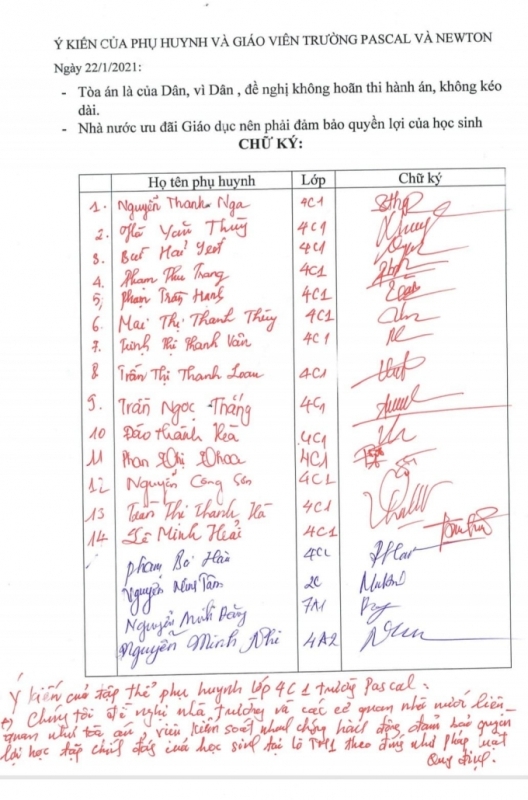 Ý KIẾN CỦA PHỤ HUYNH VÀ GIÁO VIÊN TRƯỜNG PASCAL VÀ NEWTON
Ngày 22/1/2021:
- Tòa án là của Dân, vì Dân , đề nghị không hoãn thi hành án, không kéo
dài.
- Nhà nước ưu đãi Giáo dục nên phải đảm bảo quyền lợi của học sinh
CHỮ KÝ:
Họ tên phụ huynh Lớp Chữ ký
1. Nguyễn Thanh Nga 4C1
2. Thúy 4C1
3. Bùi Mai 4C1
4. Phạm Thu Trang 4C1
5, Phạm Trần Hạnh 4C1
6. Mai Thị Thanh Thủy 4C1
7. Trịnh Thị Thanh Vân 4C1
8 Trần Thị Thanh Loan 4C1
9. Trần Ngọc Thắng 4C1
10 Đào Thanh Hà 4C1
11 Phan Thị Thoa 4C1
12 Nguyễn Công Sơn 4C1
13 Trần Thị Thanh Hà 4C1
14 Lê Minh Hải 4C1
Phạm
Nguyễn Tâm 2C
Nguyễn Minh Đăng 7A1
Nguyễn Minh Nhi 4A2
Ý kiến của tập thể phụ huynh lớp 4C1 trường Pascal:
Chúng tôi đề nghị nhà trường và các cơ quan nhà nước liên
quan như tòa án, viện kiểm soát nhanh chóng hành động đảm bảo quyền
lợi học tập chính đáng của học sinh tại lô TH1 theo đúng như pháp luật
Quy định.